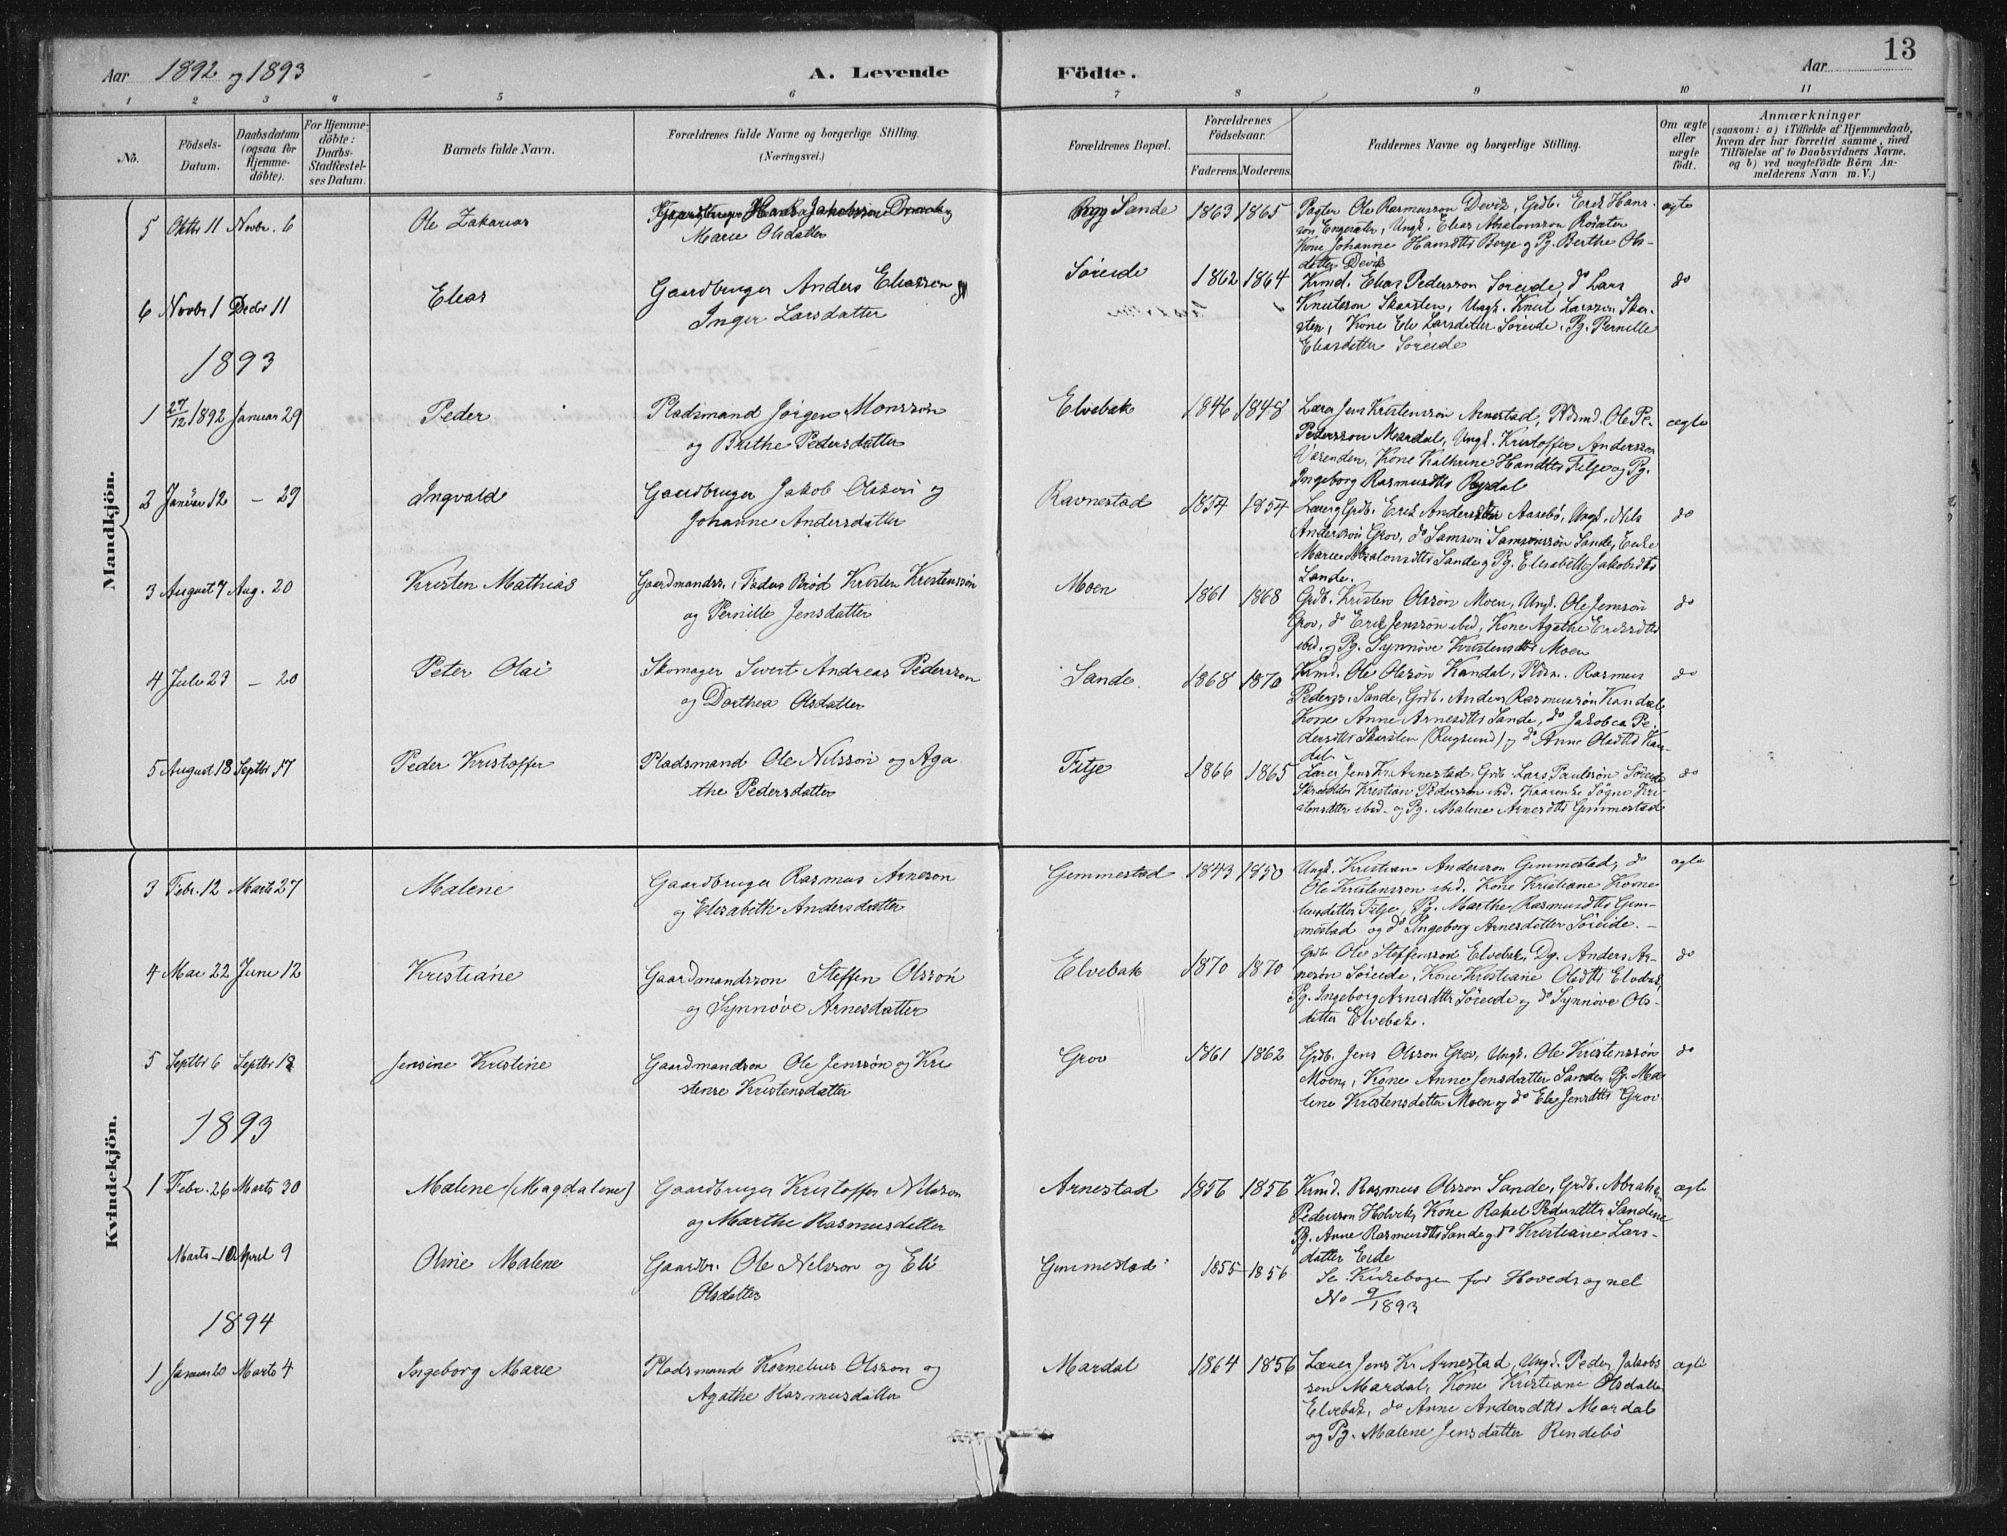 13
Aar 1892 og 1893
A. Levende
Födte.
Aar
1 2 3 4 5 6 7 8 9 10 11
No.
Födsels-Datum.
Daabsdatum (ogsaa for Hjemme-döbte).
For Hjemme-döbte: Daabs-Stadfæstel-ses Datum.
Barnets fulde Navn.
Forældrenes fulde Navne og borgerlige Stilling.
(Næringsvei.)
Forældrenes Bopæl.
Forældrenes Födselsaar.
Faderens. Moderens.
Faddernes Navne og borgerlige Stilling.
Om ægte eller uægte födt.
Anmærkninger
(saasom: a) i Tilfælde af Hjemmedaab, hvem der har forrettet samme, med Tilföielse af to Daabsvidners Navne, og b) ved uægtefödte Börn An-melderens Navn m. V.)
Mandkjön.
5 Oktbr 11 Novbr. 6 Ole Zakarias
Marie Olsdatter
Sande 1863 1865
Pagter Ole Rasmusson Devik, Grdb. Erik Hans-
son Engesæter, Ungk. Elias Absalonsson Rösæter
Kone Johanne Hansdtr Berge og Pg. Berthe Ols-
datter Devik
ægte
6 Novbr 1 Decbr 11 Elias
Gaardbruger Anders Eliasson og
Inger Larsdatter
Söreide 1862 1864
Krmd. Elias Pedersson Söreide, do Lars
Knutsson Skarsten, Ungk. Knut Larsson Skar-
sten, Kone Eli Larsdatter Söreide, Pg. Pernille
Eliasdatter Söreide
do
1893
1 27/12 1892 Januar 29 Peder
Pladsmand Jörgen Monssön
og Brithe Pedersdatter
Elvebak 1846 1848
Lærer Jens Kristenssön Arnestad, Pldsmd. Ole Pe-
Pedersson Mardal, Ungk. Kristoffer Andersson
Kone Kathrine Hansdtr Fitje og Pg.
Ingeborg Rasmusdtr Rysdal
ægte
2 Januar 12 — 29 Ingvald
Gaardbruger Jakob Olsson og
Johanne Andersdatter
Ravnestad 1854 1854
Grdb. Erik Aasebö, Ungk. Nils
Anderssön Grov, do Samson Samsonssön Sande, Enke
Marie Absalonsdtr Sande og Pg. Elisabeth Jakobsdtr
Sande.
do
3 August 7 Aug. 20 Kristen Mathias
Gaardmandss., Faders Bröd Kristen Kristenssön
og Pernille Jensdatter
Moen 1861 1868
Grdb. Kristen Olssön Moen, Ungk. Ole Jenssön
Grov, do Erik Jenssön ibid, Kone Agathe Eriksdtr
ibid, og Pg. Synnöve Kristensdtr Moen
do
4 Juli 23 — 20 Peter Olai
Skomager Sivert Andreas Pedersson
og Dorthea Olsdatter
Sande 1868 1870
Krmd. Ole Olssön Kandal, Pldsm. Rasmus
Peders. Sande, Grdb. Anders Rasmussön Kandal
Kone Anne Arnesdtr Sande, do Jakobea Pe-
dersdtr Skarsten (Rugsund) og do Anne Olsdtr Kan-
dal
do
5 August 18 Septbr 17 Peder Kristoffer
Pladsmand Ole Nilsson og Aga
the Pedersdatter
Fitje 1866 1865
Lærer Jens Kr. Arnestad, Grdb. Lars Paulssön Söreide
Skrædder Kristian Pedersson ibid.
ibid. og Pg. Malene Arnesdtr Gimmestad
do
Kvindekjön.
3 Febr. 12 Marts 27 Malene
Gaardbruger Rasmus Arneson
og Elisabeth Andersdatter
Gemmestad 1843 1850
Ungk. Kristian Andersson Gemmestad, do
Ole Kristensson ibid. Kone Kristiane Korne
liusdatter Fitje, Pg. Marthe Rasmusdtr Gim-
mestad og do Ingeborg Arnesdatter Söreide.
ægte
4 Mai 22 Juni 12 Kristiane
Gaardmandsson Steffen Olssön
og Synnöve Arnesdatter
Elvebak 1870 1870
Grdb Ole Steffensson Elvebak, Dg. Anders Ar-
nesön Söreide, Kone Kristiane Olsdtr Elvebak,
Pg. Ingeborg Arnesdtr Söreide og do Synnöve Ols-
datter Elvebak.
do
5 Septbr 6 Septbr 18 Jensine Kristine
Gaardmandsön Ole Jenssön og Kri
stense Kristensdatter
Grov 1861 1862
Grdb. Jens Olsson Grov, Ungk. Ole Kristenssön
Moen, Kone Anne Jensdatter Sande, Pg. Ma
lene Kristensdatter Moen og do Eli Jensdtr Grov
do
1893
1 Febr. 26 Marts 30 Malene (Magdalene)
Gaardbruger Kristoffer Nilsson
og Marthe Rasmusdatter
Arnestad 1856 1856
Krmd. Rasmus Olsson Sande, Grdb. Abraham
Pedersson Holvik, Kone Rakel Pedersdtr Sandene
Pg. Anne Rasmusdtr Sande og do Kristiane Lars-
datter Eide
ægte
Marts 10 April 9 Oline Malene
Gaardbr. Ole Nilsson og Eli
Olsdatter
Gimmestad 1855 1856
Se Kirkebogen for Hovedsognet
No 9/1893
1894
1 Januar Marts 4 Ingeborg Marie
Pladsmand Kornelius Olsson og
Agathe Rasmusdatter
Mardal 1864 1856
Lærer Jens Kr. Arnestad, Ungk. Peder Jakobs
son Mardal, Kone Kristiane Olsdatter
Elvebak, do Anne Andersdtr Mardal
og Pg. Malene Jensdatter Rindebö
ægte